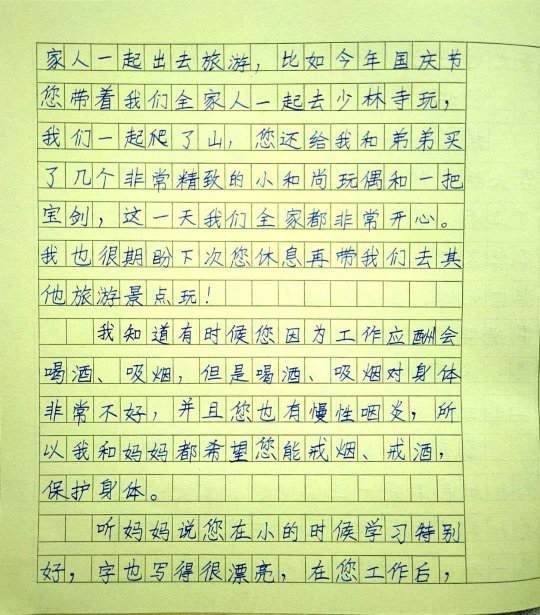 家人一起出去旅游，比如今年国庆节
您带着我们全家人一起去少林寺玩，
我们一起爬了山，您还给我和弟弟买
了几个非常精致的小和尚玩偶和一把
宝剑，这一天我们全家都非常开心。
我也很期盼下次您休息再带我们去其
他旅游景点玩！
我知道有时候您因为工作应酬会
喝酒、吸烟，但是喝酒、吸烟对身体
非常不好，并且您也有慢性咽炎，所
以我和妈妈都希望您能戒烟、戒酒，
保护身体。
听妈妈说您在小的时候学习特别
好，字也写得很漂亮，在您工作后，